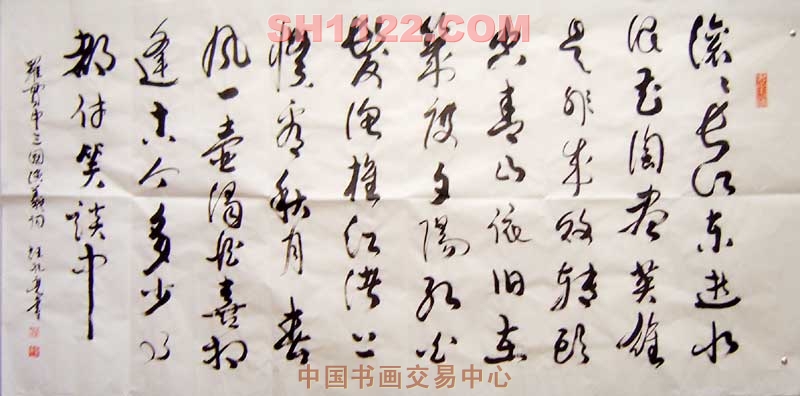 滚〻长江东逝水
浪花淘尽英雄
是非成败转头
空青山依旧在
幾度夕陽红白
髮渔樵江渚上
惯看秋月春
风一壶浊酒喜相
逢古今多少事
都付笑谈中
羅貫中三國演義詞
SH1122.COM
中国书画交易中心